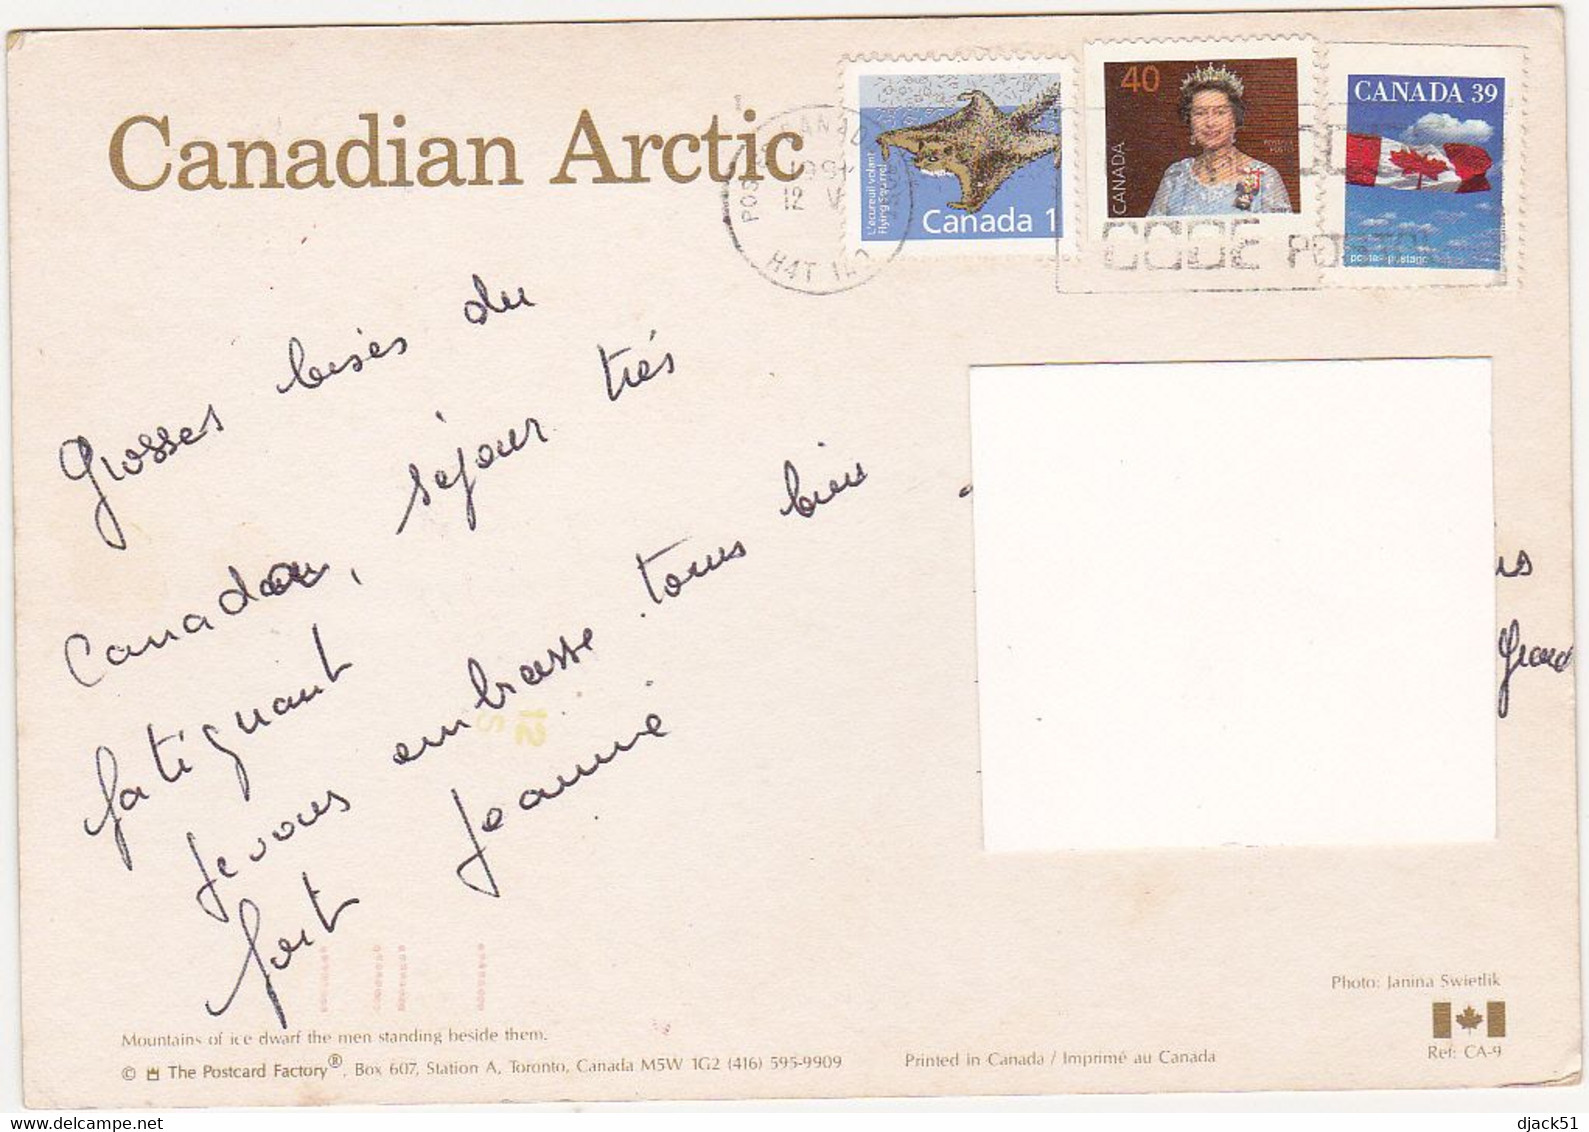 Canadian Arctic
POSTES CANADA
1994
12 V
H4T 1A0
L'écureuil volant
Flying Squirrel
Canada 1
40
CANADA
CANADA 39
postes-postage
CODE POSTAL
Grosses bises du
Canada, séjour très
fatiguant
Je vous embrasse tous bien
fort Jeannie
us
Grand
12
S
Photo: Janina Swietlik
Mountains of ice dwarf the men standing beside them.
Ref: CA-9
© The Postcard Factory®, Box 607, Station A, Toronto, Canada M5W 1G2 (416) 595-9909
Printed in Canada / Imprimé au Canada
delcampe.net
djack51